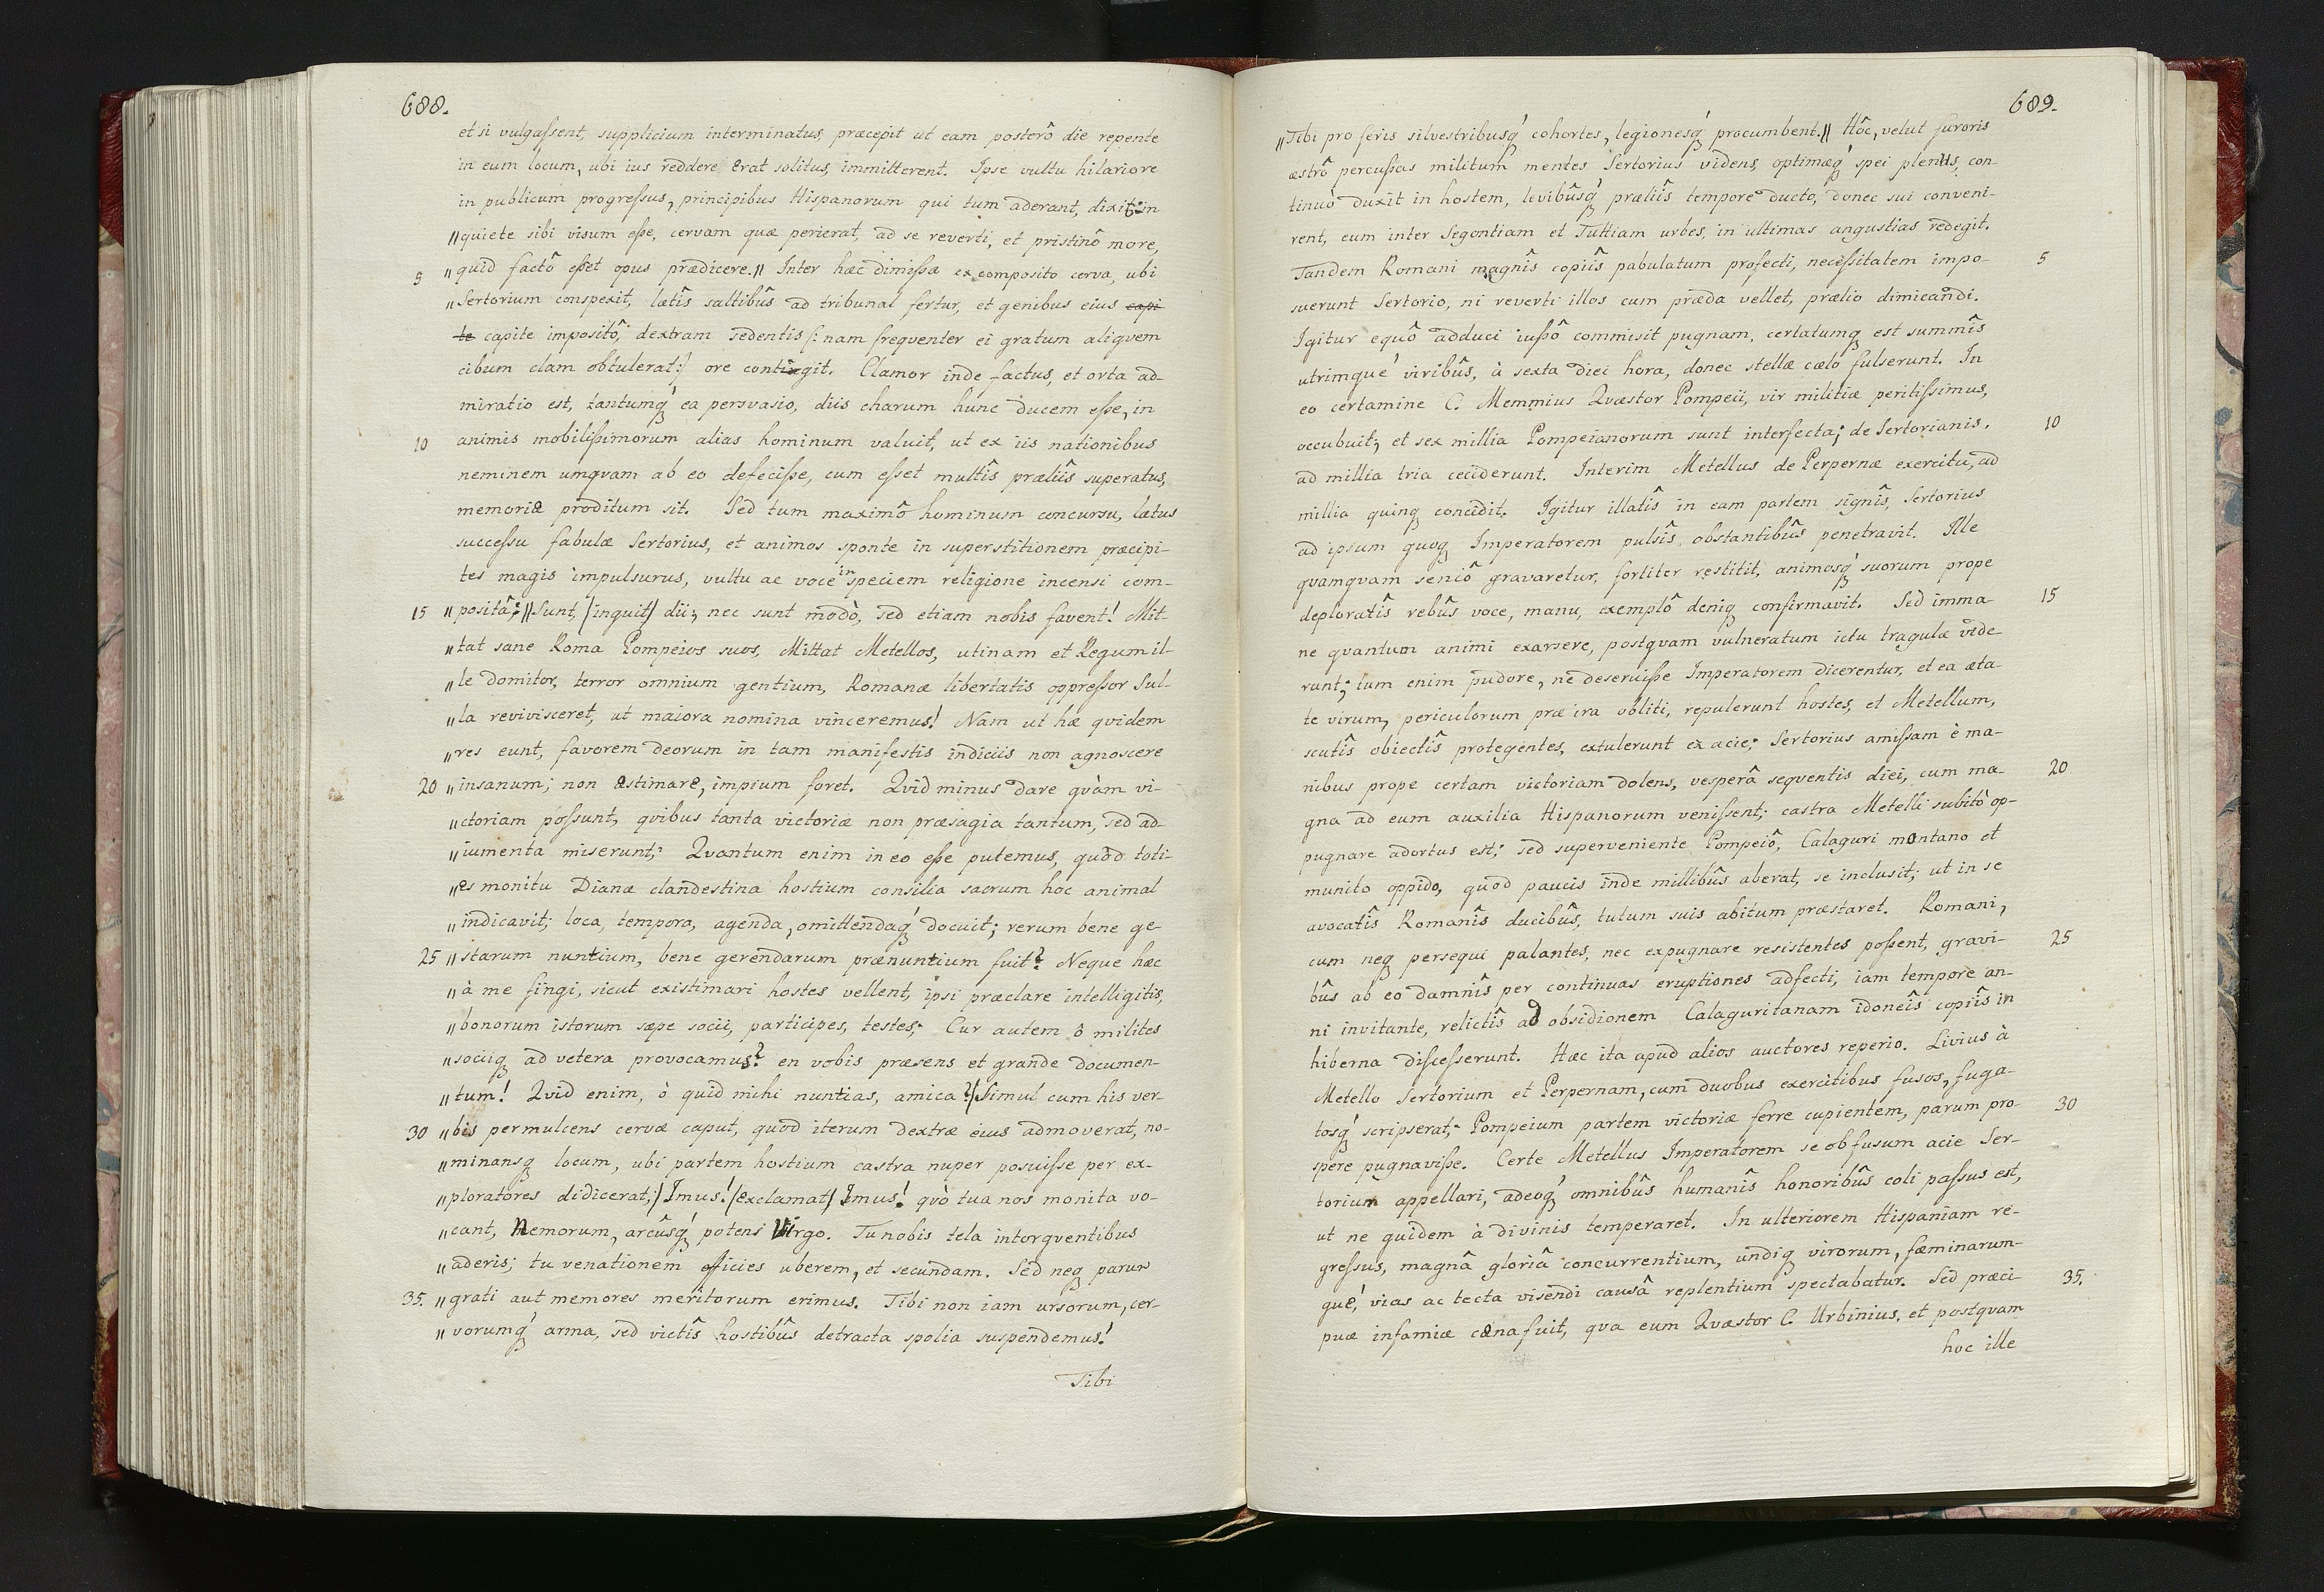 688.
et si vulgaſsent, supplicium interminatus, præcepit ut eam posterô die repente
in eum locum, ubi ius reddere erat solitus, immitterent. Ipse vultu hilariore
in publicum progreſsus, principibus Hispanorum qui tum aderant, dixit: in
„ quiete sibi visum eſse, cervam quæ perierat, ad se reverti, et pristinô more,
5 „ quid factô eſset opus prædicere. „ Inter hæc dimiſsa ex composito cerva, ubi
„ Sertorium conspexit, lætîs saltibûs ad tribunal fertur, et genibus eius capi
te capite impositô, dextram sedentis /: nam freqventer ei gratum aliqvem
cibum clam obtulerat :/ ore contigit. Clamor inde factus, et orta ad-
miratio est, tantumq́ꝫ ea persvasio, diis charum hunc ducem eſse, in
10 animis mobiliſsimorum alias hominum valuit, ut ex iis nationibus
neminem umqvam ab eo defeciſse, cum eſset multîs præliîs superatus,
memoriæ proditum sit. Sed tum maximô hominum concursu, lætus
succeſsu fabulæ Sertorius, et animos sponte in superstitionem præcipi-
tes magis impulsurus, vultu ac voce in speciem religione incensi com-
15 „ positâ: „ Sunt, /inquit/ dii; nec sunt modò, sed etiam nobis favent! Mit-
„ tat sane Roma Pompeios suos, Mittat Metellos, utinam et Regum il-
„ le domitor, terror omnium gentium, Romanæ libertatis oppreſsor Sul-
„ la revivisceret, ut maiora nomina vinceremus! Nam ut hæ qvidem
„ res eunt, favorem deorum in tam manifestis indiciis non agnoscere
20 „ insanum; non æstimare, impium foret. Qvid minus dare qvàm vi-
„ ctoriam poſsunt, qvibus tanta victoriæ non præsagia tantum, sed ad-
„ iumenta miserunt; Qvantum enim in eo eſse putemus, quòd toti-
„ es monitu Dianæ clandestina hostium consilia sacrum hoc animal
„ indicavit; loca, tempora, agenda, omittendaq́ꝫ docuit; rerum bene ge-
25 „ starum nuntium, bene gerendarum prænuntium fuit? Neque hæc
„ à me fingi, sicut existimari hostes vellent, ipsi præclare intelligitis,
„ bonorum istorum sæpe socii, participes, testes; Cur autem ô milites
„ sociiqꝫ ad vetera provocamus? en vobis præsens et grande documen-
„ tum! Qvid enim, ò quid mihi nuntias, amica?/ Simul cum his ver-
30 „ bis permulcens cervæ caput, quod iterum dextræ eius admoverat, no-
„ minansqꝫ locum, ubi partem hostium castra nuper posuiſse per ex-
„ ploratores didicerat;/ Imus! /exclamat/ Imus! qvò tua nos monita vo-
„ cant, Nemorum, arcûsq́ꝫ potens Virgo. Tu nobis tela intorqventibus
„ aderis; tu venationem efficies uberem, et secundam. Sed neqꝫ parum
35. „ grati aut memores meritorum erimus. Tibi non iam ursorum, cer-
„ vorumq́ꝫ arma, sed victîs hostibûs detracta spolia suspendemus!
Tibi
689.
„ Tibi pro feris silvestribusq́ꝫ cohortes, legionesq́ꝫ procumbent. „ Hôc, velut furoris
œstrô percuſsas militum mentes Sertorius videns, optimæq́ꝫ spei plenus, con-
tinuò duxit in hostem, levibûsq́ꝫ præliîs tempore ducto, donec sui conveni-
rent, eum inter Segontiam et Tuttiam urbes, in ultimas angustias redegit.
Tandem Romani magnîs copiîs pabulatum profecti, neceſsitatem impo- 5
suerunt Sertorio, ni reverti illos cum præda vellet, prælio dimicandi.
Igitur equô adduci iuſsô commisit pugnam, certatumqꝫ est summîs
utrimque viribûs, à sexta diei hora, donec stellæ cælo fulserunt. In
eo certamine C. Memmius Qvæstor Pompeii, vir militiæ peritiſsimus,
occubuit; et sex millia Pompeianorum sunt interfecta; de Sertorianis, 10
ad millia tria ceciderunt. Interim Metellus de Perpernæ exercitu, ad
millia quinqꝫ concidit. Igitur illatîs in eam partem signîs, Sertorius
ad ipsum quoqꝫ Imperatorem pulsîs obstantibûs penetravit. Ille
qvamqvam seniô gravaretur, fortiter restitit, animosq́ꝫ suorum prope
deploratîs rebûs voce, manu, exemplô deniqꝫ confirmavit. Sed imma- 15
ne qvantum animi exarsere, postqvam vulneratum ictu tragulæ vide-
runt; tum enim pudore, ne deseruiſse Imperatorem dicerentur, et ea æta-
te virum, periculorum præ ira obliti, repulerunt hostes, et Metellum,
scutîs obiectîs protegentes, extulerunt ex acie; Sertorius amiſsam è ma-
nibus prope certam victoriam dolens, vesperâ seqventis diei, cum ma- 20
gna ad eum auxilia Hispanorum veniſsent; castra Metelli subitò op-
pugnare adortus est; sed superveniente Pompeiô, Calaguri montano et
munito oppido, quod paucis inde millibûs aberat, se inclusit; ut in se
avocatîs Romanîs ducibûs, tutum suis abitum præstaret. Romani,
cum neqꝫ persequi palantes, nec expugnare resistentes poſsent, gravi- 25
bûs ab eo damnîs per continuas eruptiones adfecti, iam tempore an-
ni invitante, relictîs ad obsidionem Calaguritanam idoneîs copiîs in
hiberna diſceſserunt. Hæc ita apud alios auctores reperio. Livius à
Metello Sertorium et Perpernam, cum duobus exercitibus fusos, fuga-
tosq́ꝫ scripserat; Pompeium partem victoriæ ferre cupientem, parum pro- 30
spere pugnaviſse. Certe Metellus Imperatorem se ob fusum acie Ser-
torium appellari, adeoq́ꝫ omnibûs humanîs honoribûs coli paſsus est,
ut ne quidem à divinis temperaret. In ulteriorem Hispaniam re-
greſsus, magnâ gloriâ concurrentium, undiqꝫ virorum, fœminarum-
que, vias ac tecta visendi causâ replentium spectabatur. Sed præci- 35.
puæ infamiæ cæna fuit, qva eum Qvæstor C. Urbinius, et postqvam
hoc ille